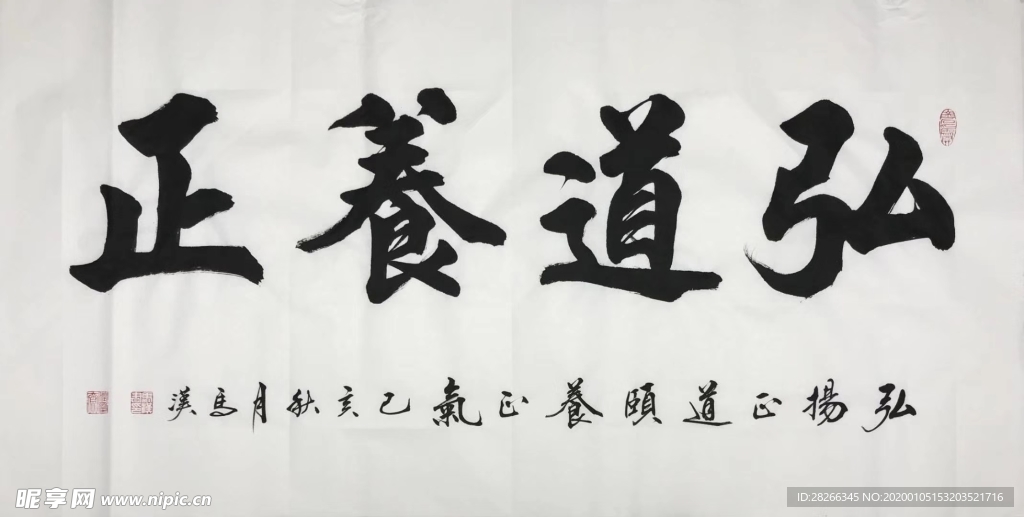 弘道養正
弘揚正道頤養正氣己亥秋月馬漢
昵享网 www.nipic.cn
ID:28266345 NO:20200105153203521716